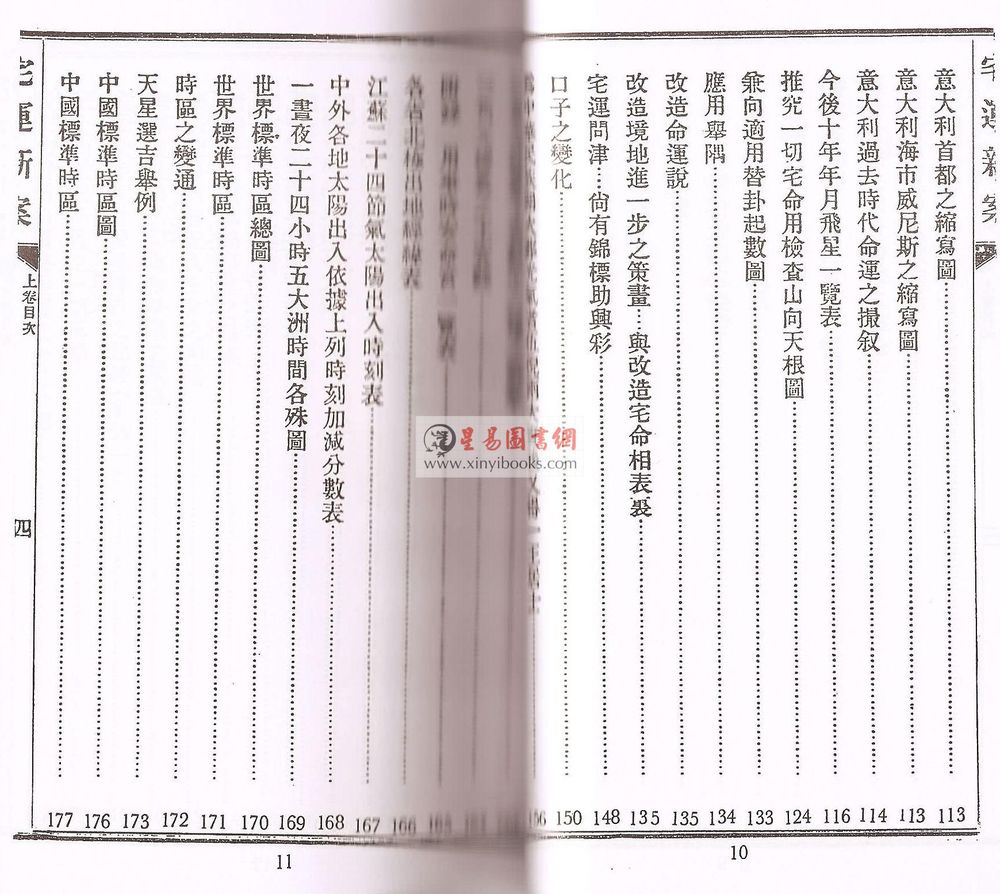 宅運新案
意大利首都之縮寫圖 113
意大利海市威尼斯之縮寫圖 113
意大利過去時代命運之撮叙 114
今後十年年月飛星一覽表 116
推究一切宅命用檢查山向天根圖 124
兼向適用替卦起數圖 133
應用舉隅 134
改造命運說 135
改造境地進一步之策畫…與改造宅命相表裂 135
宅運問津…尙有錦標助興彩 148
口子之變化 150
10
星易圖書網
www.xinyibooks.com
各省北極出地經緯表 166
江蘇二十四節氣太陽出入時刻表 167
中外各地太陽出入依據上列時刻加減分數表 168
一晝夜二十四小時五大洲時間各殊圖 169
世界標準時區總圖 170
世界標準時區 171
時區之變通 172
天星選吉舉例 173
中國標準時區圖 176
中國標準時區 177
宅運新案
上卷目次
四
11